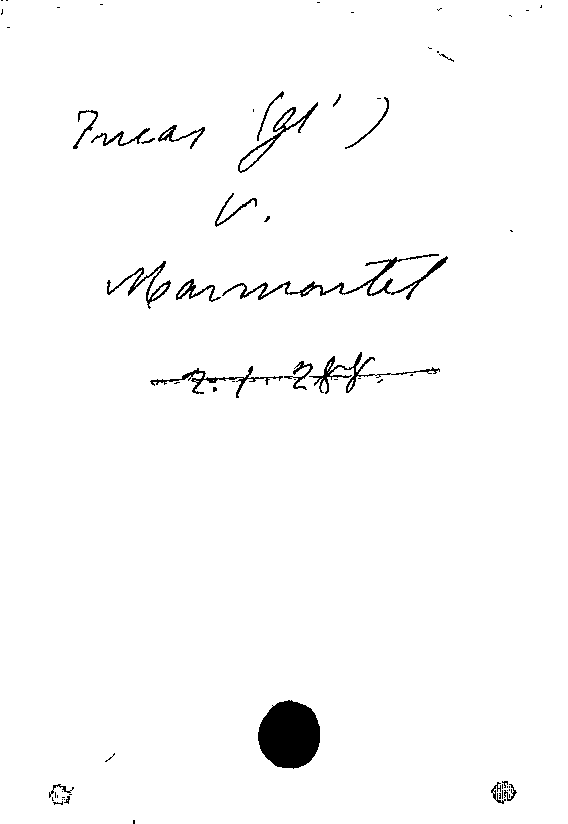 Incas (gl')
v.
Marmontel
Z. 1. 288.